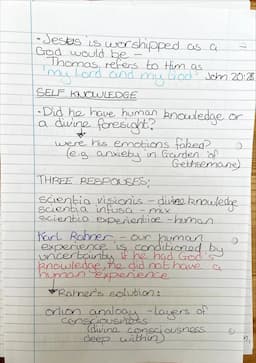 - Jesus is worshipped as a
God would be -
Thomas refers to Him as
"my Lord and my God" John 20:28
SELF KNOWLEDGE
- Did he have human knowledge or
a divine foresight?
were his emotions faked?
(e.g anxiety in Garden of
Gethsemane)
THREE RESPONSES:
scientia visionis - divine knowledge
scientia infusa - mix
scientia experientiae - human
Karl Rahner - our human
experience is conditioned by
uncertainty. If he had God's
knowledge, he did not have a
human experience
Rahner's solution:
onion analogy - layers of
consciousness
(divine consciousness
deep within)